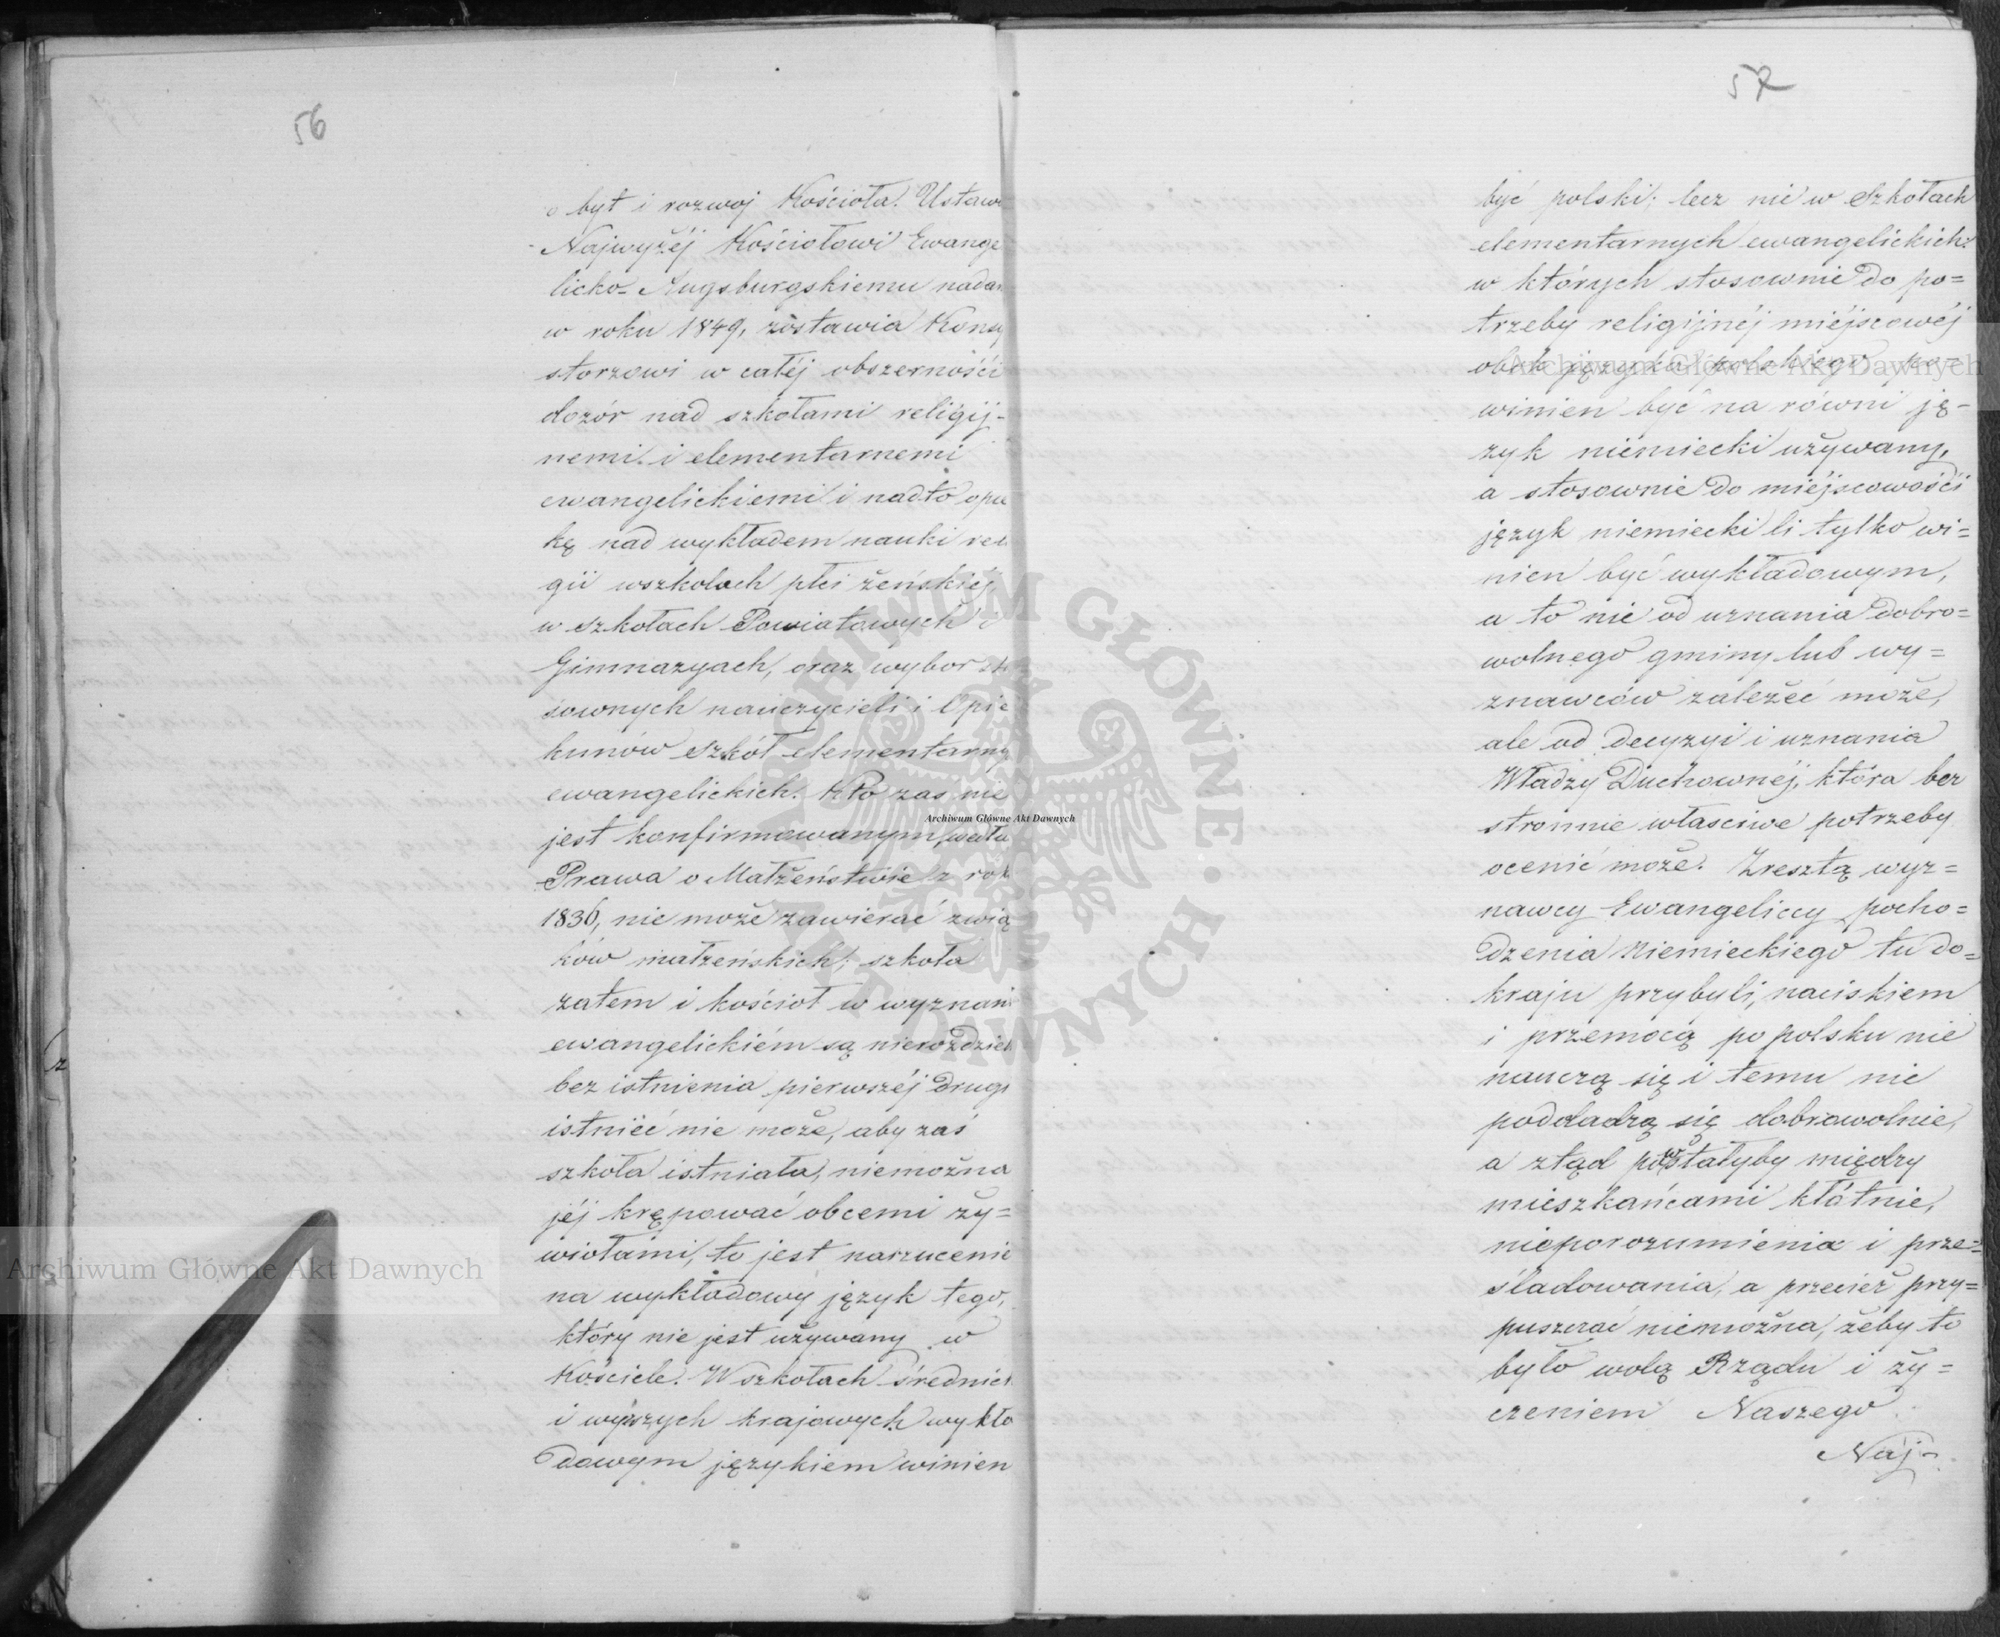 56
o byt i rozwoj Kościoła. Ustawa
Najwyżéj Kościołowi Ewange
licko-Augsburgskiemu nadan
w roku 1849, zostawia Konsy
storzowi w całéj obszerności
dozór nad szkołami religij-
nemi i elementarnemi
ewangelickiemi i nadto opie
kę nad wykładem nauki reli
gii wszkolach płci żeńskiéj,
w szkołach Powiatowych i
Gimnazyach, oraz wybor sto
sownych nauczycieli i Opie
kunów szkół elementarny
ewangelickich. Kto zas nie
jest konfirmowanym, wedłu
Prawa o Małżeństwie z rok
1836, nie może zawierać zwią
ków małżeńskich; szkoła
zatem i kościoł w wyznani
ewangelickiém są nierozdziel
bez istnienia pierwszéj drugi
istniéć nie może, aby zaś
szkoła istniała, niemożna
jéj krępować obcemi ży=
wiołami, to jest narzucenie
na wykładowy język tego,
który nie jest używany w
Kościele. W szkołach średnich
i wyższych krajowych wykła
dowym językiem winien
57
być polski; lecz nie w szkołach
elementarnych ewangelickich
w których stosownie do po=
trzeby religijnéj miéjscowéj
obok języka polskiego po-
winien być na równi ję-
zyk niémiecki używany,
a stosownie do miéjscowości
język niemiecki li tylko wi=
nien być wykładowym,
a to nie od uznania dobro=
wolnego gminy lub wy=
znawców zależéć może,
ale od decyzyi i uznania
Władzy Duchownéj, która bez
stronnie własciwe potrzeby
ocenić może. Zresztą wyz=
nawcy Ewangeliccy pocho=
dzenia Niemieckiego tu do=
kraju przybyli, naciskiem
i przemocą po polsku nie
nauczą się i temu nie
poddadzą się dobrowolnie,
a ztąd powstałyby między
mieszkańcami kłótnie,
nieporozumienia i prze=
śladowania, a przecież przy=
puszczać niemożna, żeby to
było wolą Rządu i ży=
czeniem Naszego
Naj-
Archiwum Główne Akt Dawnych
Archiwum Główne Akt Dawnych
Archiwum Główne Akt Dawnych
ARCHIWUM GŁÓWNE · AKT DAWNYCH ·